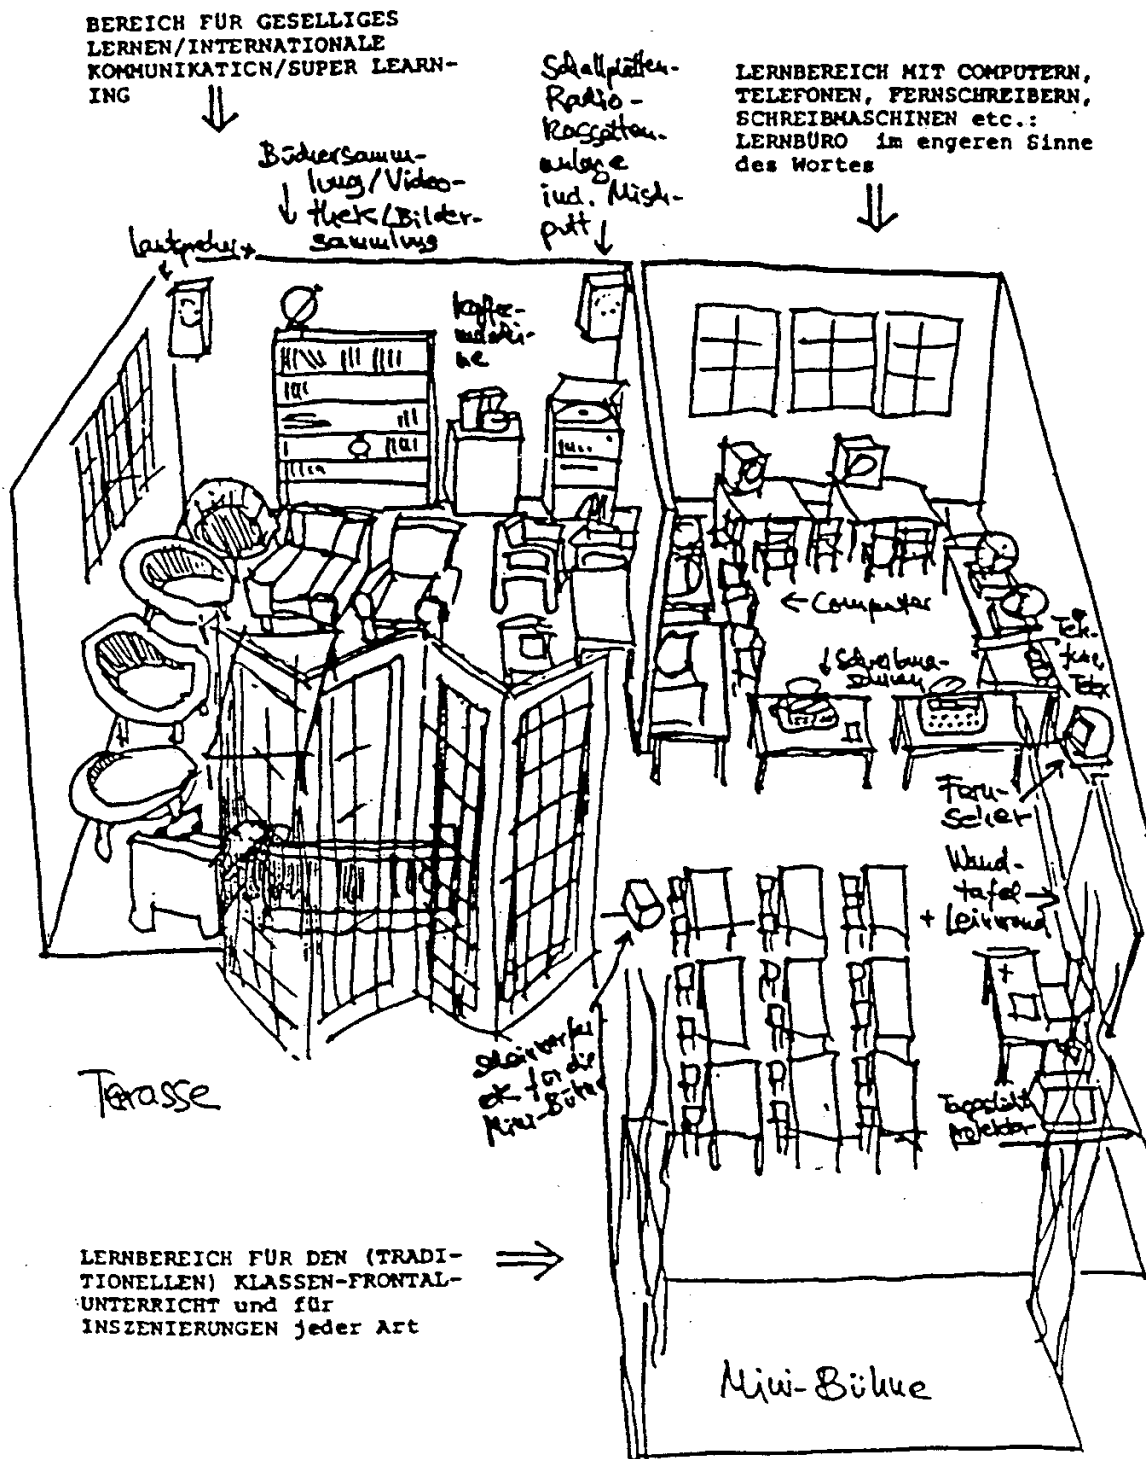 BEREICH FÜR GESELLIGES
LERNEN/INTERNATIONALE
KOMMUNIKATICN/SUPER LEARN-
ING
Schallplatten-
Radio-
Kassetten-
anlage
incl. Misch-
pult
LERNBEREICH MIT COMPUTERN,
TELEFONEN, FERNSCHREIBERN,
SCHREIBMASCHINEN etc.:
LERNBÜRO im engeren Sinne
des Wortes
Büchersamm-
lung/Video-
thek/Bilder-
sammlung
Lautsprecher
Kaffee-
maschi-
ne
Computer
Schreibma-
schinen
Fern-
seher
Wand-
tafel
+ Leinwand
für die
Mini-Bühne
Tageslicht
projektor
Terasse
LERNBEREICH FÜR DEN (TRADI-
TIONELLEN) KLASSEN-FRONTAL-
UNTERRICHT und für
INSZENIERUNGEN jeder Art
Mini-Bühne